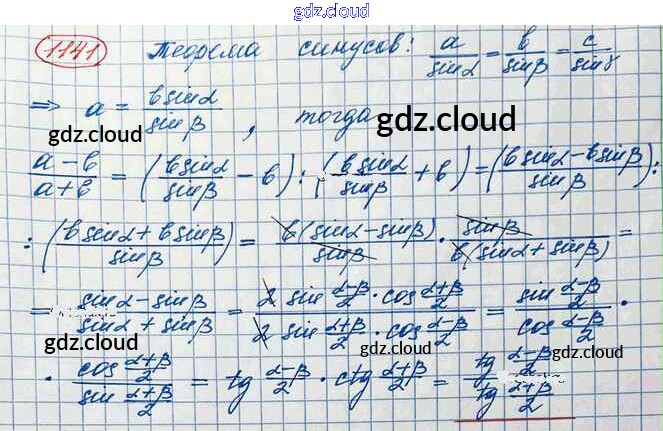 gdz.cloud
1141 Теорема синусов: a/sinα = b/sinβ = c/sinγ
⇒ a = b sinα/sinβ, тогда
gdz.cloud gdz.cloud
(a-b)/(a+b) = (b sinα/sinβ - b) : (b sinα/sinβ + b) = ((b sinα - b sinβ)/sinβ) :
gdz.cloud gdz.cloud
: ((b sinα + b sinβ)/sinβ) = b(sinα - sinβ)/sinβ · sinβ/(b(sinα + sinβ)) =
= (sinα - sinβ)/(sinα + sinβ) = (2 sin (α-β)/2 · cos (α+β)/2)/(2 sin (α+β)/2 · cos (α-β)/2) = (sin (α-β)/2)/(cos (α-β)/2) ·
gdz.cloud gdz.cloud
· (cos (α+β)/2)/(sin (α+β)/2) = tg (α-β)/2 · ctg (α+β)/2 = (tg (α-β)/2)/(tg (α+β)/2)
gdz.cloud gdz.cloud